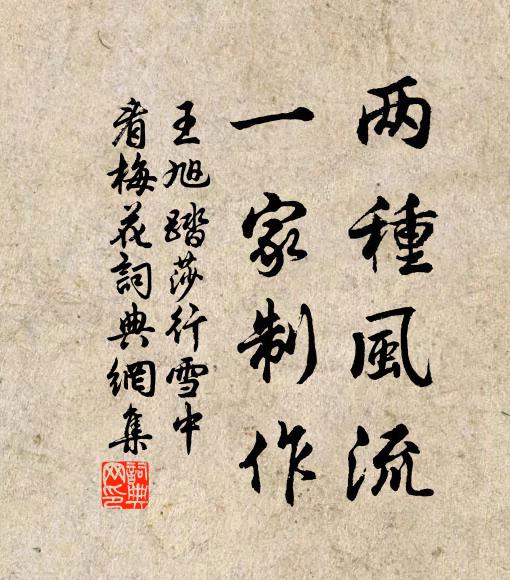 两種風流
一家制作
王旭踏莎行雪中
看梅花詞典網集
詞典
网印